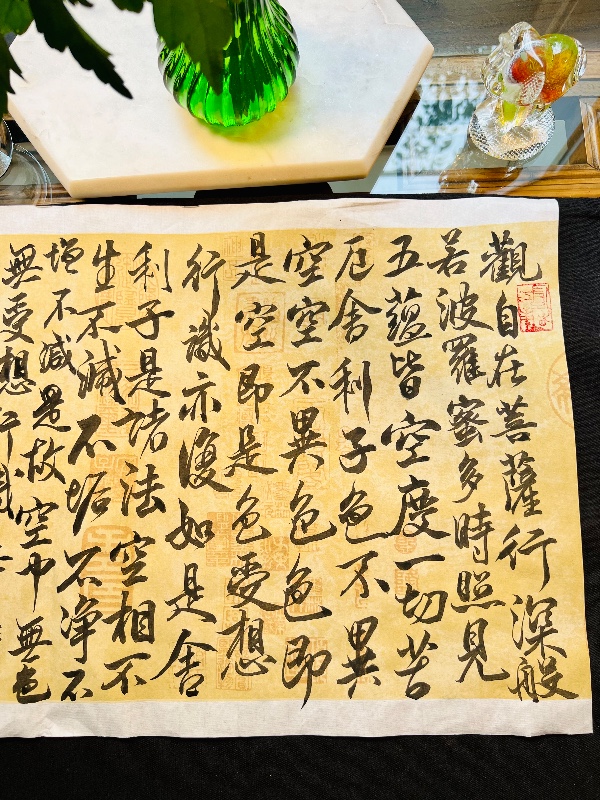 觀自在菩薩行深般
若波羅蜜多時照見
五蘊皆空度一切苦
厄舍利子色不異
空空不異色色即
是空即是色受想
行識亦復如是舍
利子是諸法空相不
生不滅不垢不净不
增不減是故空中無色
無受想行識